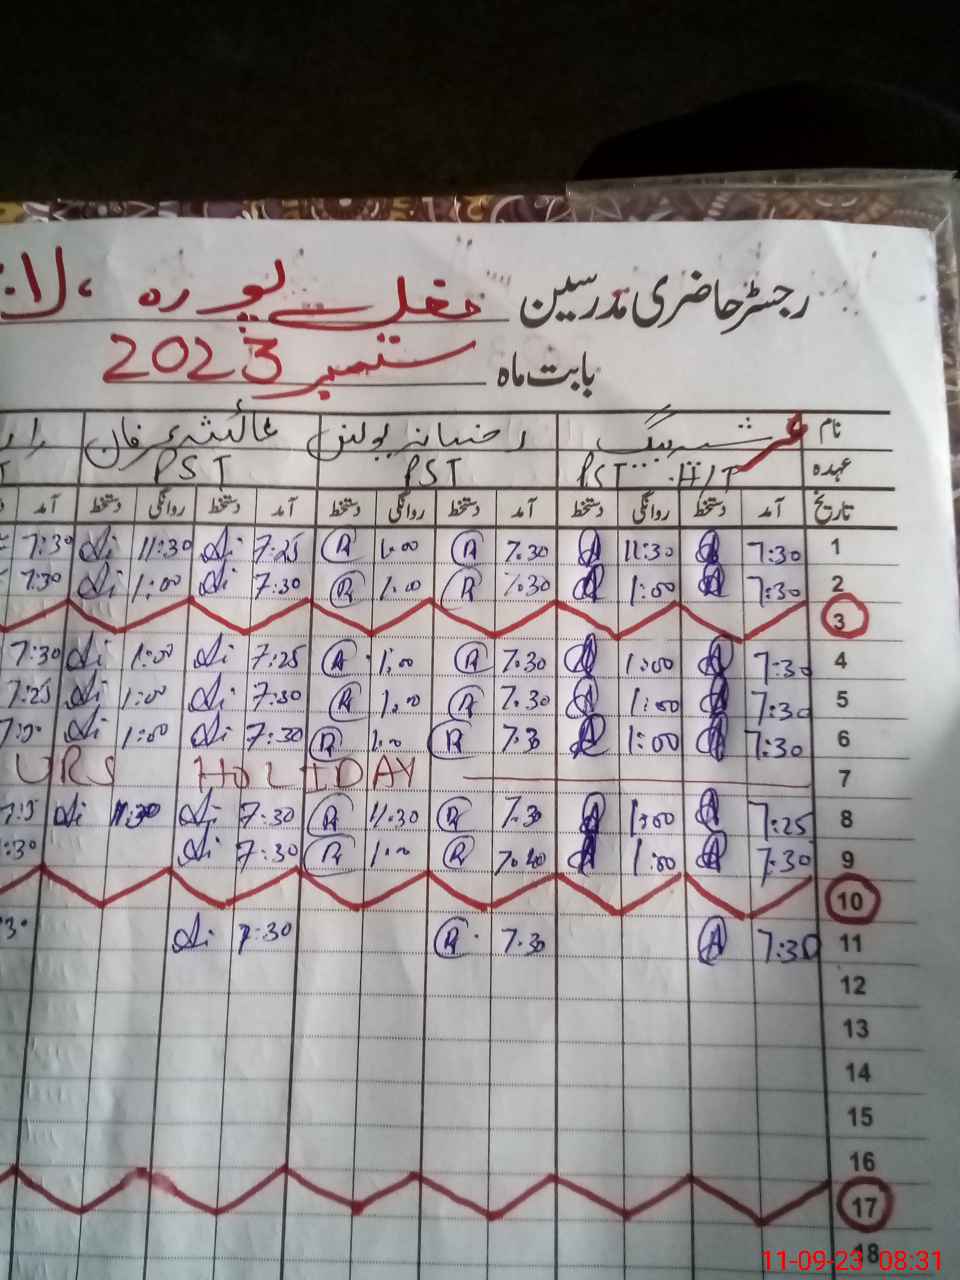 رجسٹر حاضری مدرسین مغل پورہ ،
بابت ماہ ستمبر 2023
نام رخسانہ یونس عائشہ عرفان
عہدہ H/T PST PST PST
تاریخ آمد دستخط روانگی دستخط آمد دستخط روانگی دستخط آمد دستخط روانگی دستخط آمد
1 7:30 11:30 7.30 1.00 7:25 11:30 7:30
2 7:30 1:00 7.30 1.00 7:30 1:00 7:30
3
4 7:30 1:00 7.30 1:00 7:25 1:00 7:30
5 7:30 1:00 7.30 1.00 7:30 1:00 7:25
6 7:30 1:00 7.3 1.0 7:30 1:00
7 URS HOLIDAY
8 7:25 1:00 7.3 11.30 7:30 11:30
9 7:30 1:00 7.40 1.00 7:30
10
11 7:30 7.30 7:30
12
13
14
15
16
17
18
11-09-23 08:31